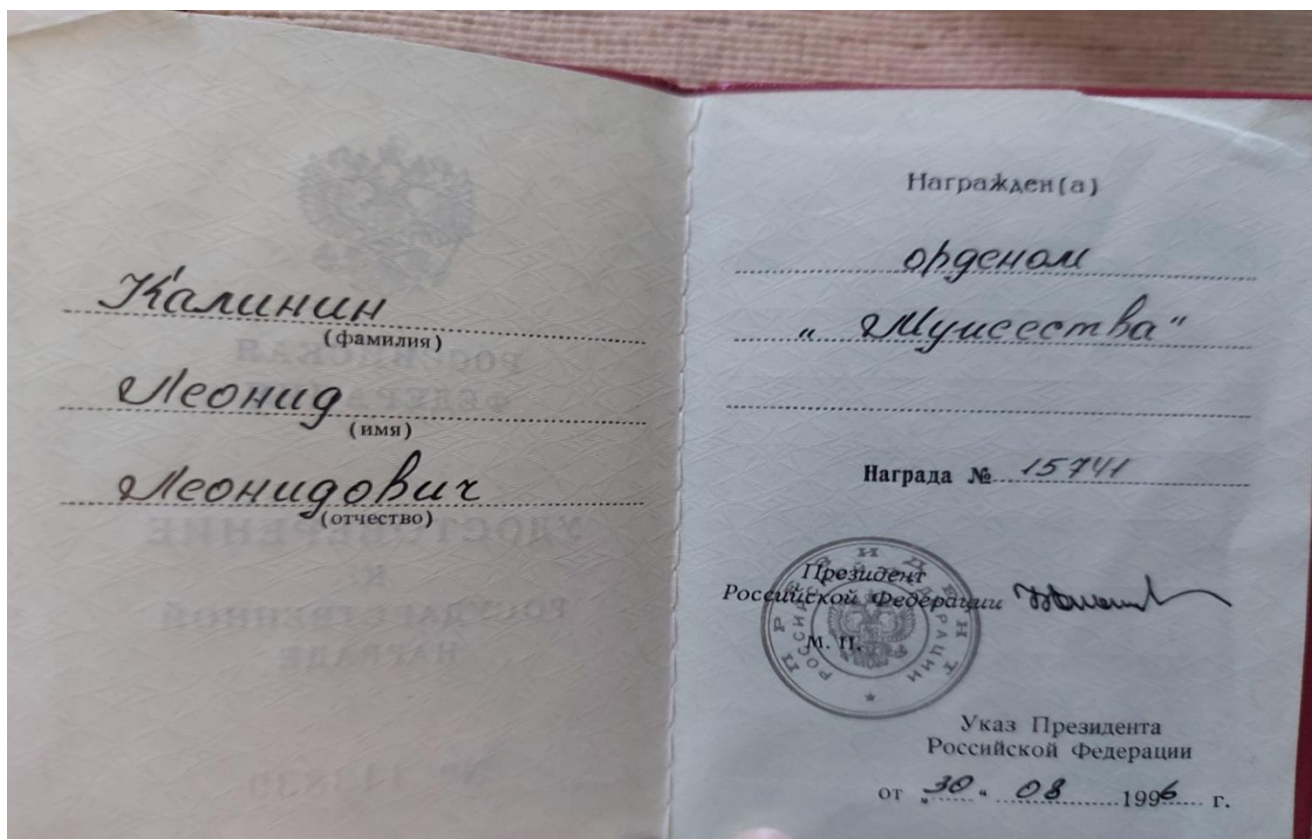 Калинин
(фамилия)
Леонид
(имя)
Леонидович
(отчество)
Награжден(а)
орденом
„ Мужества"
Награда № 15741
Президент
Российской Федерации
М. П.
ПРЕЗИДЕНТ
РОССИЙСКОЙ ФЕДЕРАЦИИ
Указ Президента
Российской Федерации
от „30" 08 1996 г.